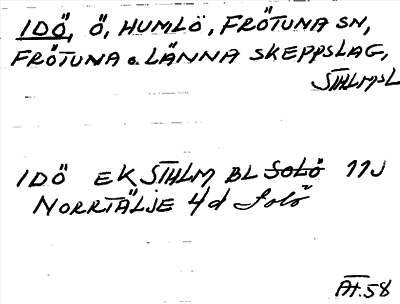 IDÖ, Ö, HUMLÖ, FRÖTUNA SN,
FRÖTUNA o. LÄNNA SKEPPSLAG,
STHLMSL
IDÖ EK STHLM BL SOLÖ 11J
NORRTÄLJE 4d Solö
At. 58